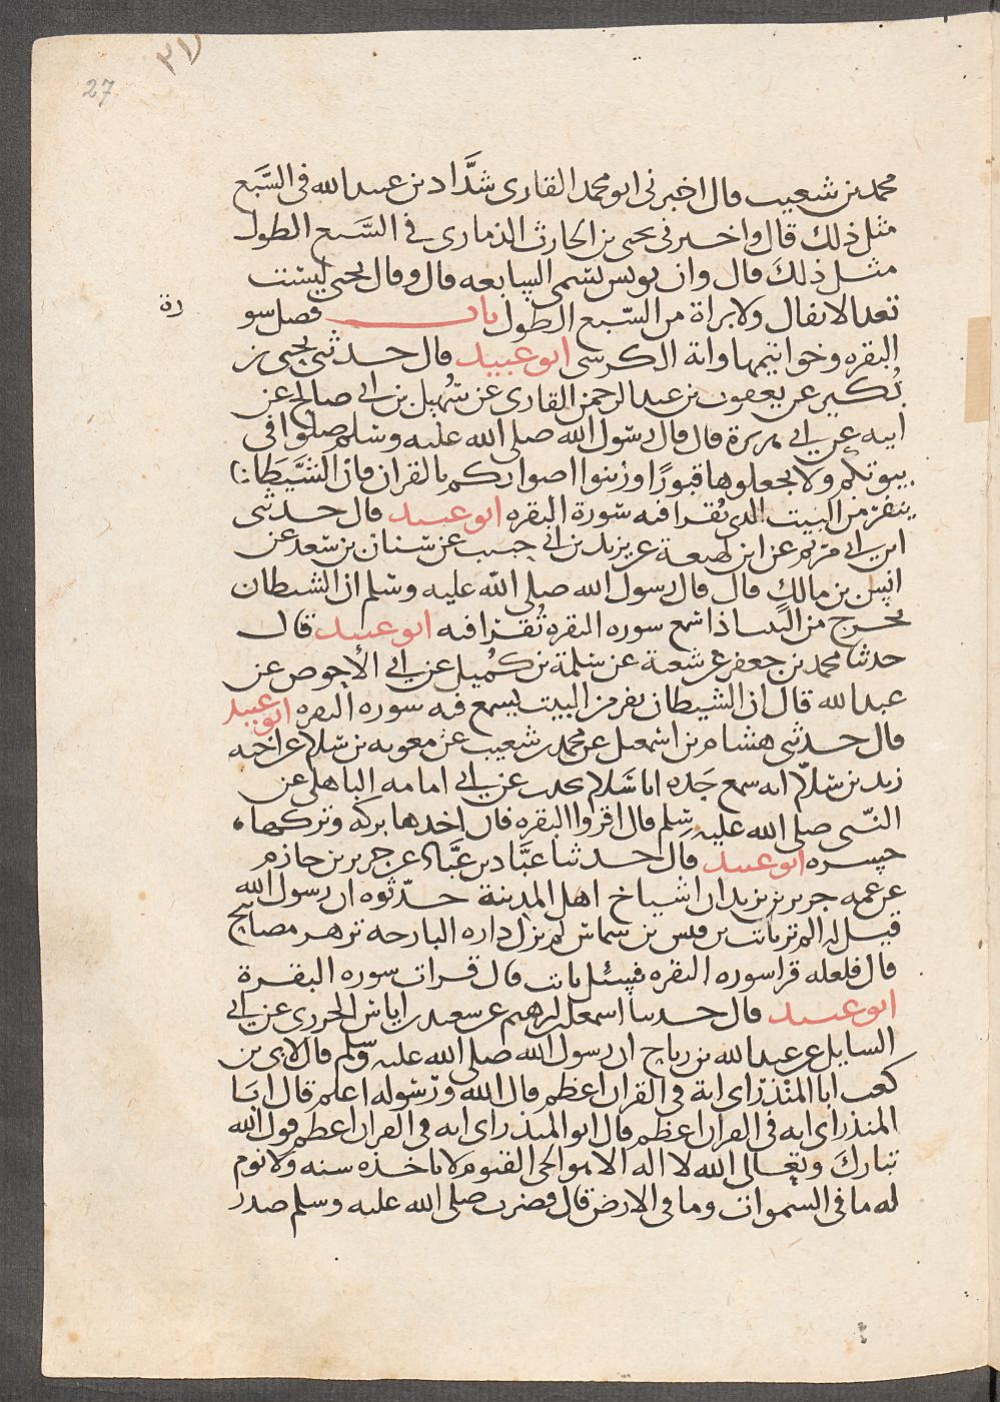 ٣١
27
محمد بن شعيب قال اخبرني ابو محمد القارى شدَّاد بن عبيد الله فى السَّبع
مثل ذلك قال واخبرنى يحيى بن الحارث الذمارى فى السَّبع الطول
مثل ذلك قال وان يونس تسمى السابعه قال وقال يحيى ليست
تعد الانفال ولا براة من السّبع الطول باب فصل سو
رة
البقره وخواتيمها واية الكرسى ابو عبيد قال حدثنى يحيى بن
بُكير عن يعقوب بن عبد الرحمن القارى عن سُهيل بن ابي صالح عن
ابيه عن ابي هريرة قال قال رسول الله صلى الله عليه وسلم صلوا فى
بيوتكم ولا تجعلوها قبورًا وزينوا اصواتكم بالقران فان الشَّيطان
ينفر من البيت الذى يُقرا فيه سورة البقره ابو عبيد قال حدثنى
ابن ابي مريم عن ابن لهيعة عن يزيد بن ابي حبيب عن سنان بن سعد عن
انس بن مالك قال قال رسول الله صلى الله عليه وسلم ان الشيطان
يخرج من البيت اذا سمع سوره البقره تُقرا فيه ابو عبيد قال
حدثنا محمد بن جعفر عن شعبة عن سلمة بن كُهيل عن ابي الاحوص عن
عبد الله قال ان الشيطان يفر من البيت يسمع فيه سوره البقره ابو عبيد
قال حدثنى هشام بن اسمعيل عن محمد بن شعيب عن معويه بن سلام عن اخيه
زيد بن سلّام انه سمع جَده ابا سَلام يحدث عن ابي امامه الباهلى عن
النّبى صلى الله عليه وسلم قال اقروا البقره فان اخذها بركه وتركها
حسره ابو عبيد قال حدثنا عبَّاد بن عبَّاد عن جرير بن حازم
عن عمه جرير بن يزيد ان اشياخ اهل المدينة حدّثوه ان رسول الله
قيل له الم تر ثابت بن قيس بن شماس لم تزل داره البارحه تزهر مصابيح
قال فلعله قرا سوره البقره فسئل ثابت قال قرات سوره البقرة
ابو عبيد قال حدثنا اسمعيل بن ابرهيم عن سعيد بن اياس الجريرى عن ابي
السليل عن عبد الله بن رباح ان رسول الله صلى الله عليه وسلم قال لابى بن
كعب ابا المنذر اى اية فى القران اعظم قال الله ورسوله اعلم قال ابا
المنذر اى ايه فى القران اعظم قال ابو المنذر اى ايه فى القران اعظم قول الله
تبارك وتعالى الله لا اله الا هو الحى القيوم لا تاخذه سنه ولا نوم
له ما فى السموات وما فى الارض قال فضرب صلى الله عليه وسلم صدر